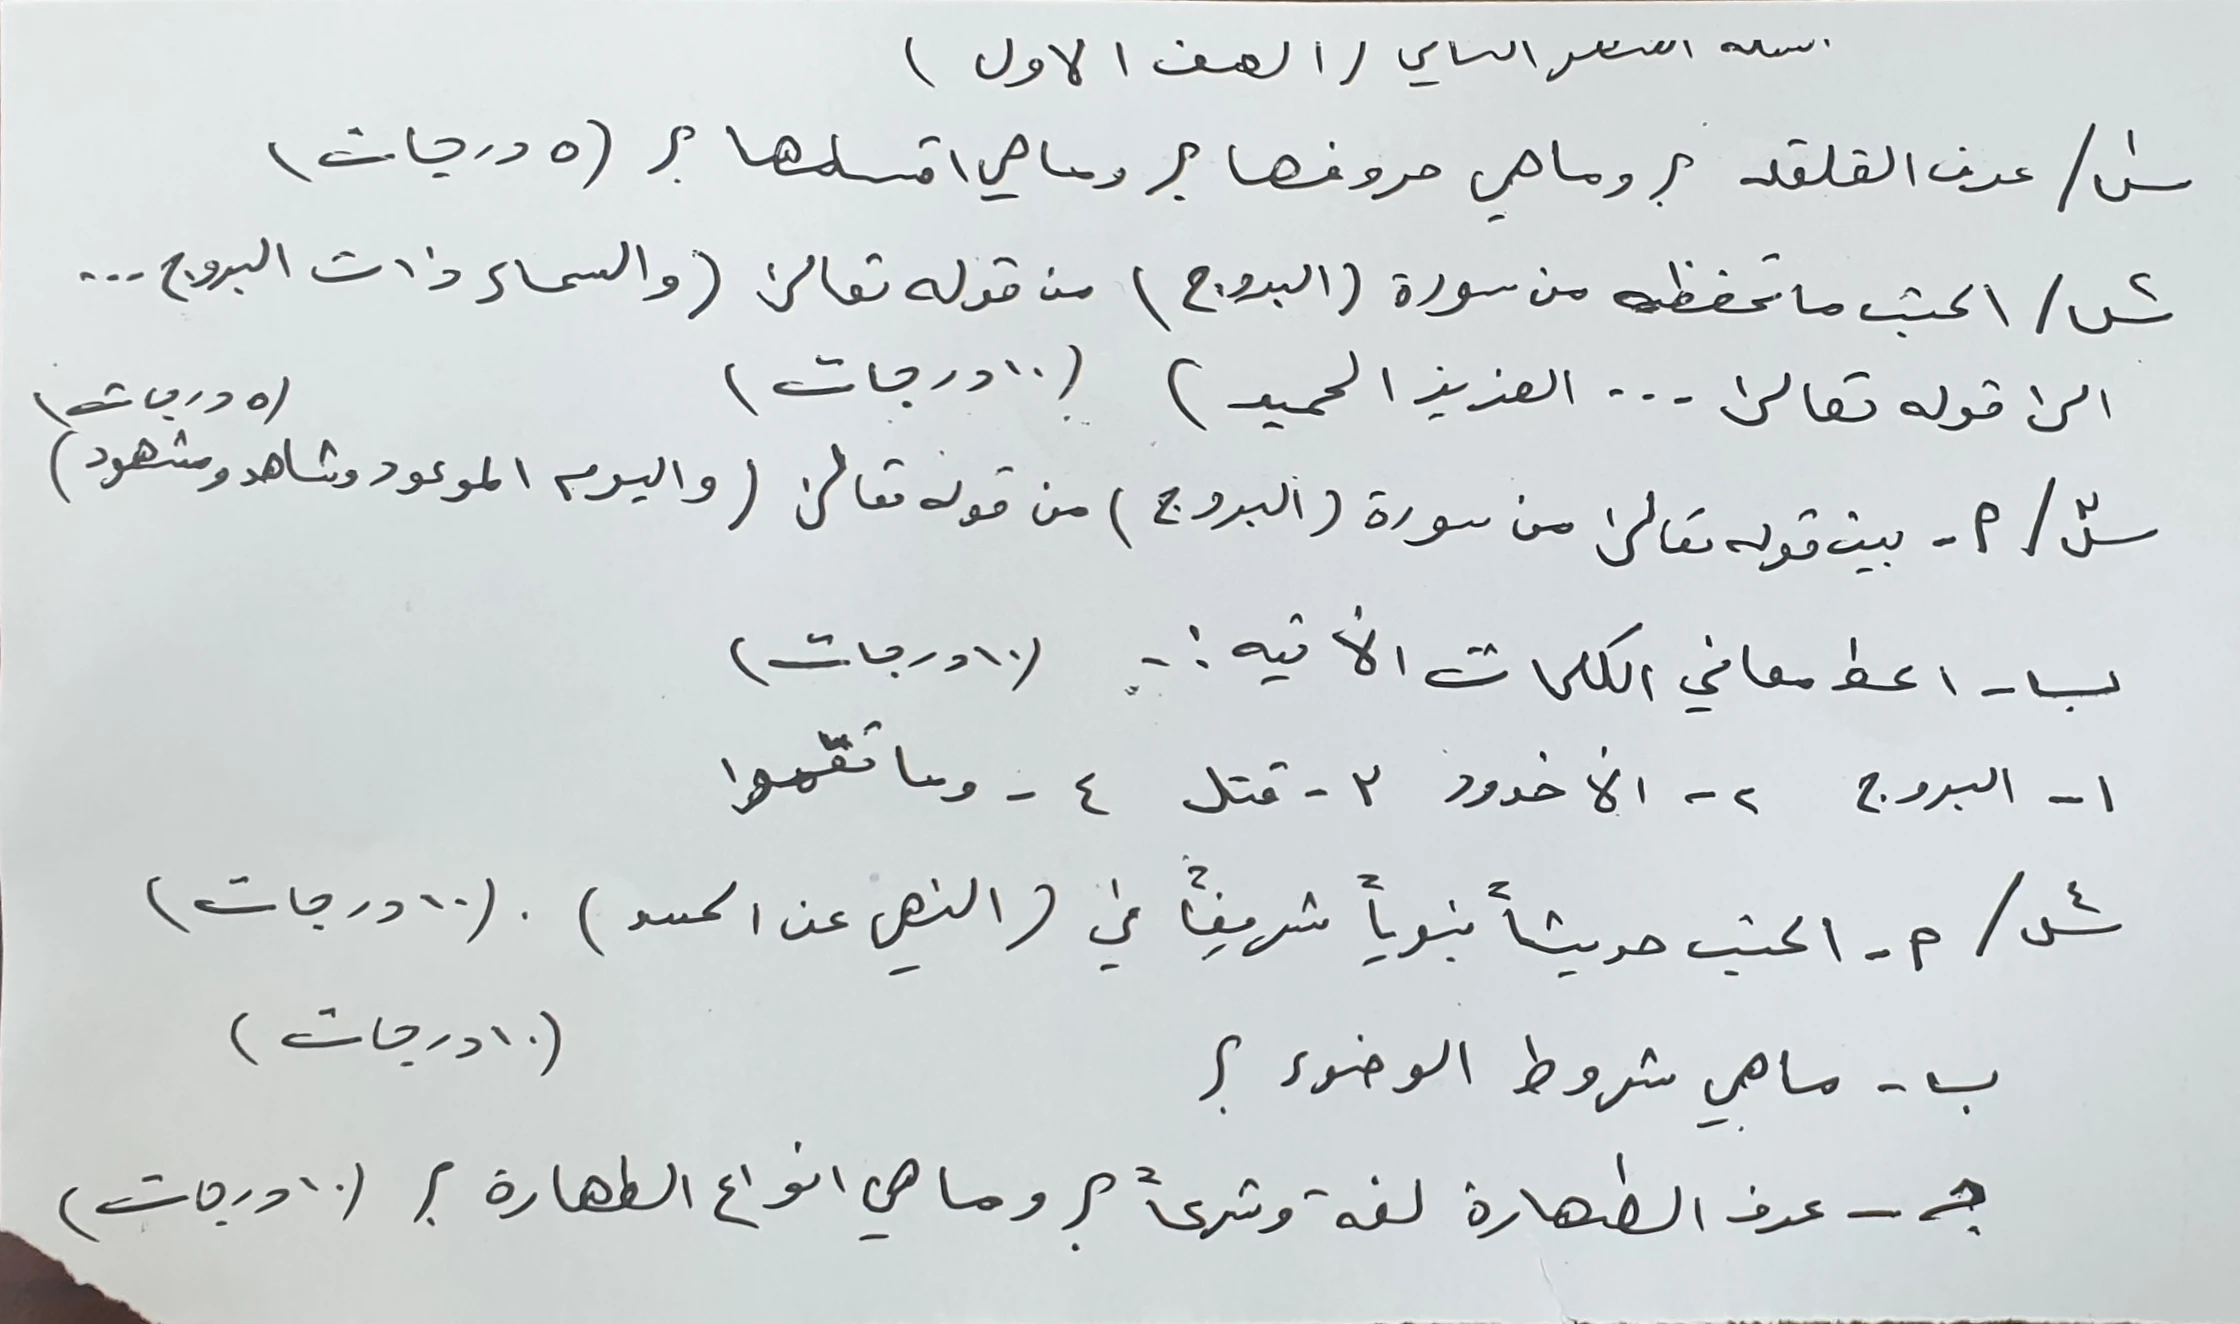 اسئله الشهر الثاني (الصف الاول)
س١/ عرف القلقله ؟ وماهي حروفها ؟ وماهي اقسامها ؟ (٥ درجات)
س٢/ اكتب ماتحفظه من سورة (البروج) من قوله تعالى (والسماء ذات البروج ...
الى قوله تعالى ... العزيز الحميد) (١٠ درجات)
(٥ درجات)
س٣/ م- بين قوله تعالى من سورة (البروج) من قوله تعالى (واليوم الموعود وشاهد ومشهود)
ب- اعط معاني الكلمات الأتيه :- (١٠ درجات)
١- البروج ٢- الأخدود ٣- قتل ٤- وما نقموا
س٤/ م- اكتب حديثاً نبوياً شريفاً في (النهي عن الحسد). (١٠ درجات)
ب- ماهي شروط الوضوء ؟ (١٠ درجات)
جـ- عرف الطهارة لغة وشرعاً ؟ وماهي انواع الطهارة ؟ (١٠ درجات)